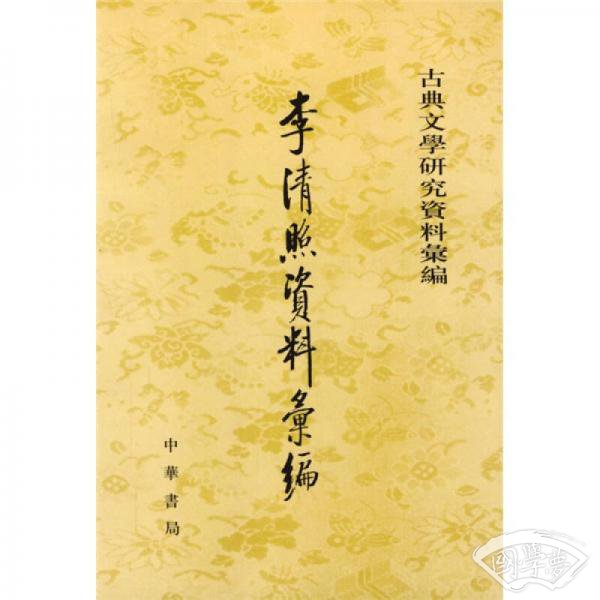 古典文學研究資料彙編
李清照資料彙編
中華書局
國學夢